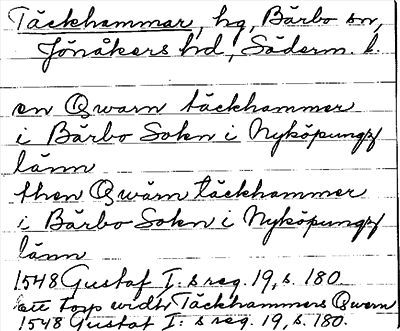 Täckhammar, hg, Bärbo sn,
Jönåkers hd, Söderm. l.
en Qwarn täckhammer
i Bärbo Sokn i Nyköpungz
länn
then Qwärn täckhammer
i Bärbo Sokn i Nyköpungz
länn
1548 Gustaf I: s reg. 19, s. 180.
ett torp widh Täckhammers Qwern
1548 Gustaf I: s reg. 19, s. 180.